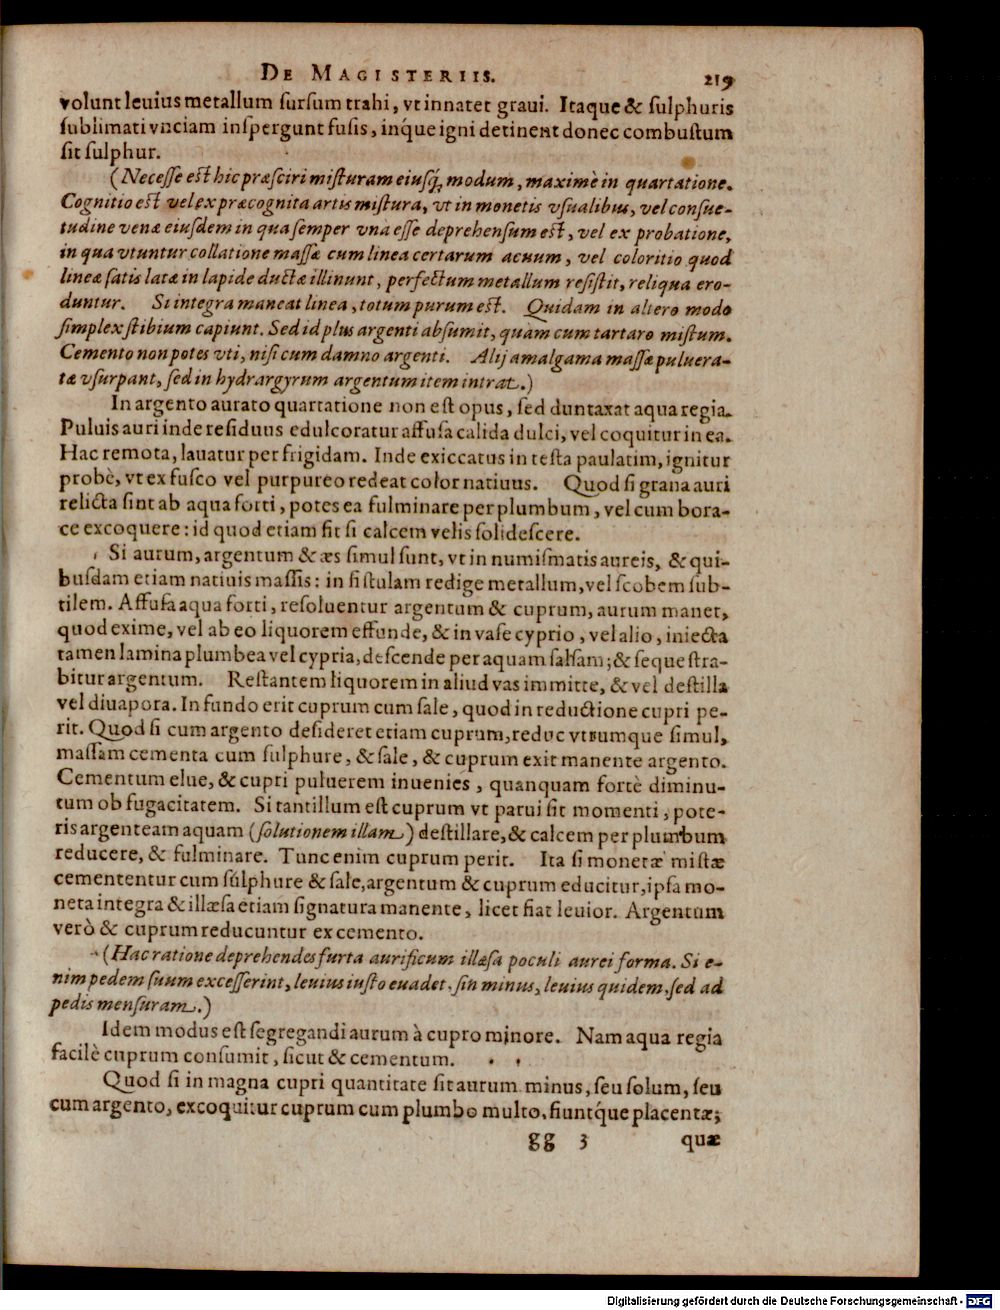 DE MAGISTERIIS. 219
volunt leuius metallum sursum trahi, vt innatet graui. Itaque & sulphuris
sublimati vnciam inspergunt fusis, inq́ue igni detinent donec combustum
sit sulphur.
(Necesse est hic præsciri misturam eiusq́; modum, maximè in quartatione.
Cognitio est vel ex præcognita artis mistura, vt in monetis vsualibus, vel consue-
tudine venæ eiusdem in qua semper vna esse deprehensum est, vel ex probatione,
in qua vtuntur collatione massæ cum linea certarum acuum, vel coloritio quod
lineæ satis latæ in lapide ductæ illinunt, perfectum metallum resistit, reliqua ero-
duntur. Si integra maneat linea, totum purum est. Quidam in altero modo
simplex stibium capiunt. Sed id plus argenti absumit, quàm cum tartaro mistum.
Cemento non potes vti, nisi cum damno argenti. Alij amalgama massæ puluera-
tæ vsurpant, sed in hydrargyrum argentum item intrat.)
In argento aurato quartatione non est opus, sed duntaxat aqua regia.
Puluis auri inde residuus edulcoratur affusa calida dulci, vel coquitur in ea.
Hac remota, lauatur per frigidam. Inde exiccatus in testa paulatim, ignitur
probè, vt ex fusco vel purpureo redeat color natiuus. Quod si grana auri
relicta sint ab aqua forti, potes ea fulminare per plumbum, vel cum bora-
ce excoquere: id quod etiam fit si calcem velis solidescere.
Si aurum, argentum & æs simul sunt, vt in numismatis aureis, & qui-
busdam etiam natiuis massis: in fistulam redige metallum, vel scobem sub-
tilem. Affusa aqua forti, resoluentur argentum & cuprum, aurum manet,
quod exime, vel ab eo liquorem effunde, & in vase cyprio, vel alio, iniecta
tamen lamina plumbea vel cypria, descende per aquam salsam; & sequestra-
bitur argentum. Restantem liquorem in aliud vas immitte, & vel destilla
vel diuapora. In fundo erit cuprum cum sale, quod in reductione cupri pe-
rit. Quod si cum argento desideret etiam cuprum, reduc vtrumque simul,
massam cementa cum sulphure, & sale, & cuprum exit manente argento.
Cementum elue, & cupri puluerem inuenies, quanquam fortè diminu-
tum ob fugacitatem. Si tantillum est cuprum vt parui sit momenti, pote-
ris argenteam aquam (solutionem illam) destillare, & calcem per plumbum
reducere, & fulminare. Tunc enim cuprum perit. Ita si monetæ mistæ
cemententur cum sulphure & sale, argentum & cuprum educitur, ipsa mo-
neta integra & illæsa etiam signatura manente, licet fiat leuior. Argentum
verò & cuprum reducuntur ex cemento.
(Hac ratione deprehendes furta aurificum illæsa poculi aurei forma. Si e-
nim pedem suum excesserint, leuius iusto euadet, sin minus, leuius quidem, sed ad
pedis mensuram.)
Idem modus est segregandi aurum à cupro minore. Nam aqua regia
facilè cuprum consumit, sicut & cementum.
Quod si in magna cupri quantitate sit aurum minus, seu solum, seu
cum argento, excoquitur cuprum cum plumbo multo, fiuntq́ue placentæ;
gg 3 quæ
Digitalisierung gefördert durch die Deutsche Forschungsgemeinschaft - DFG